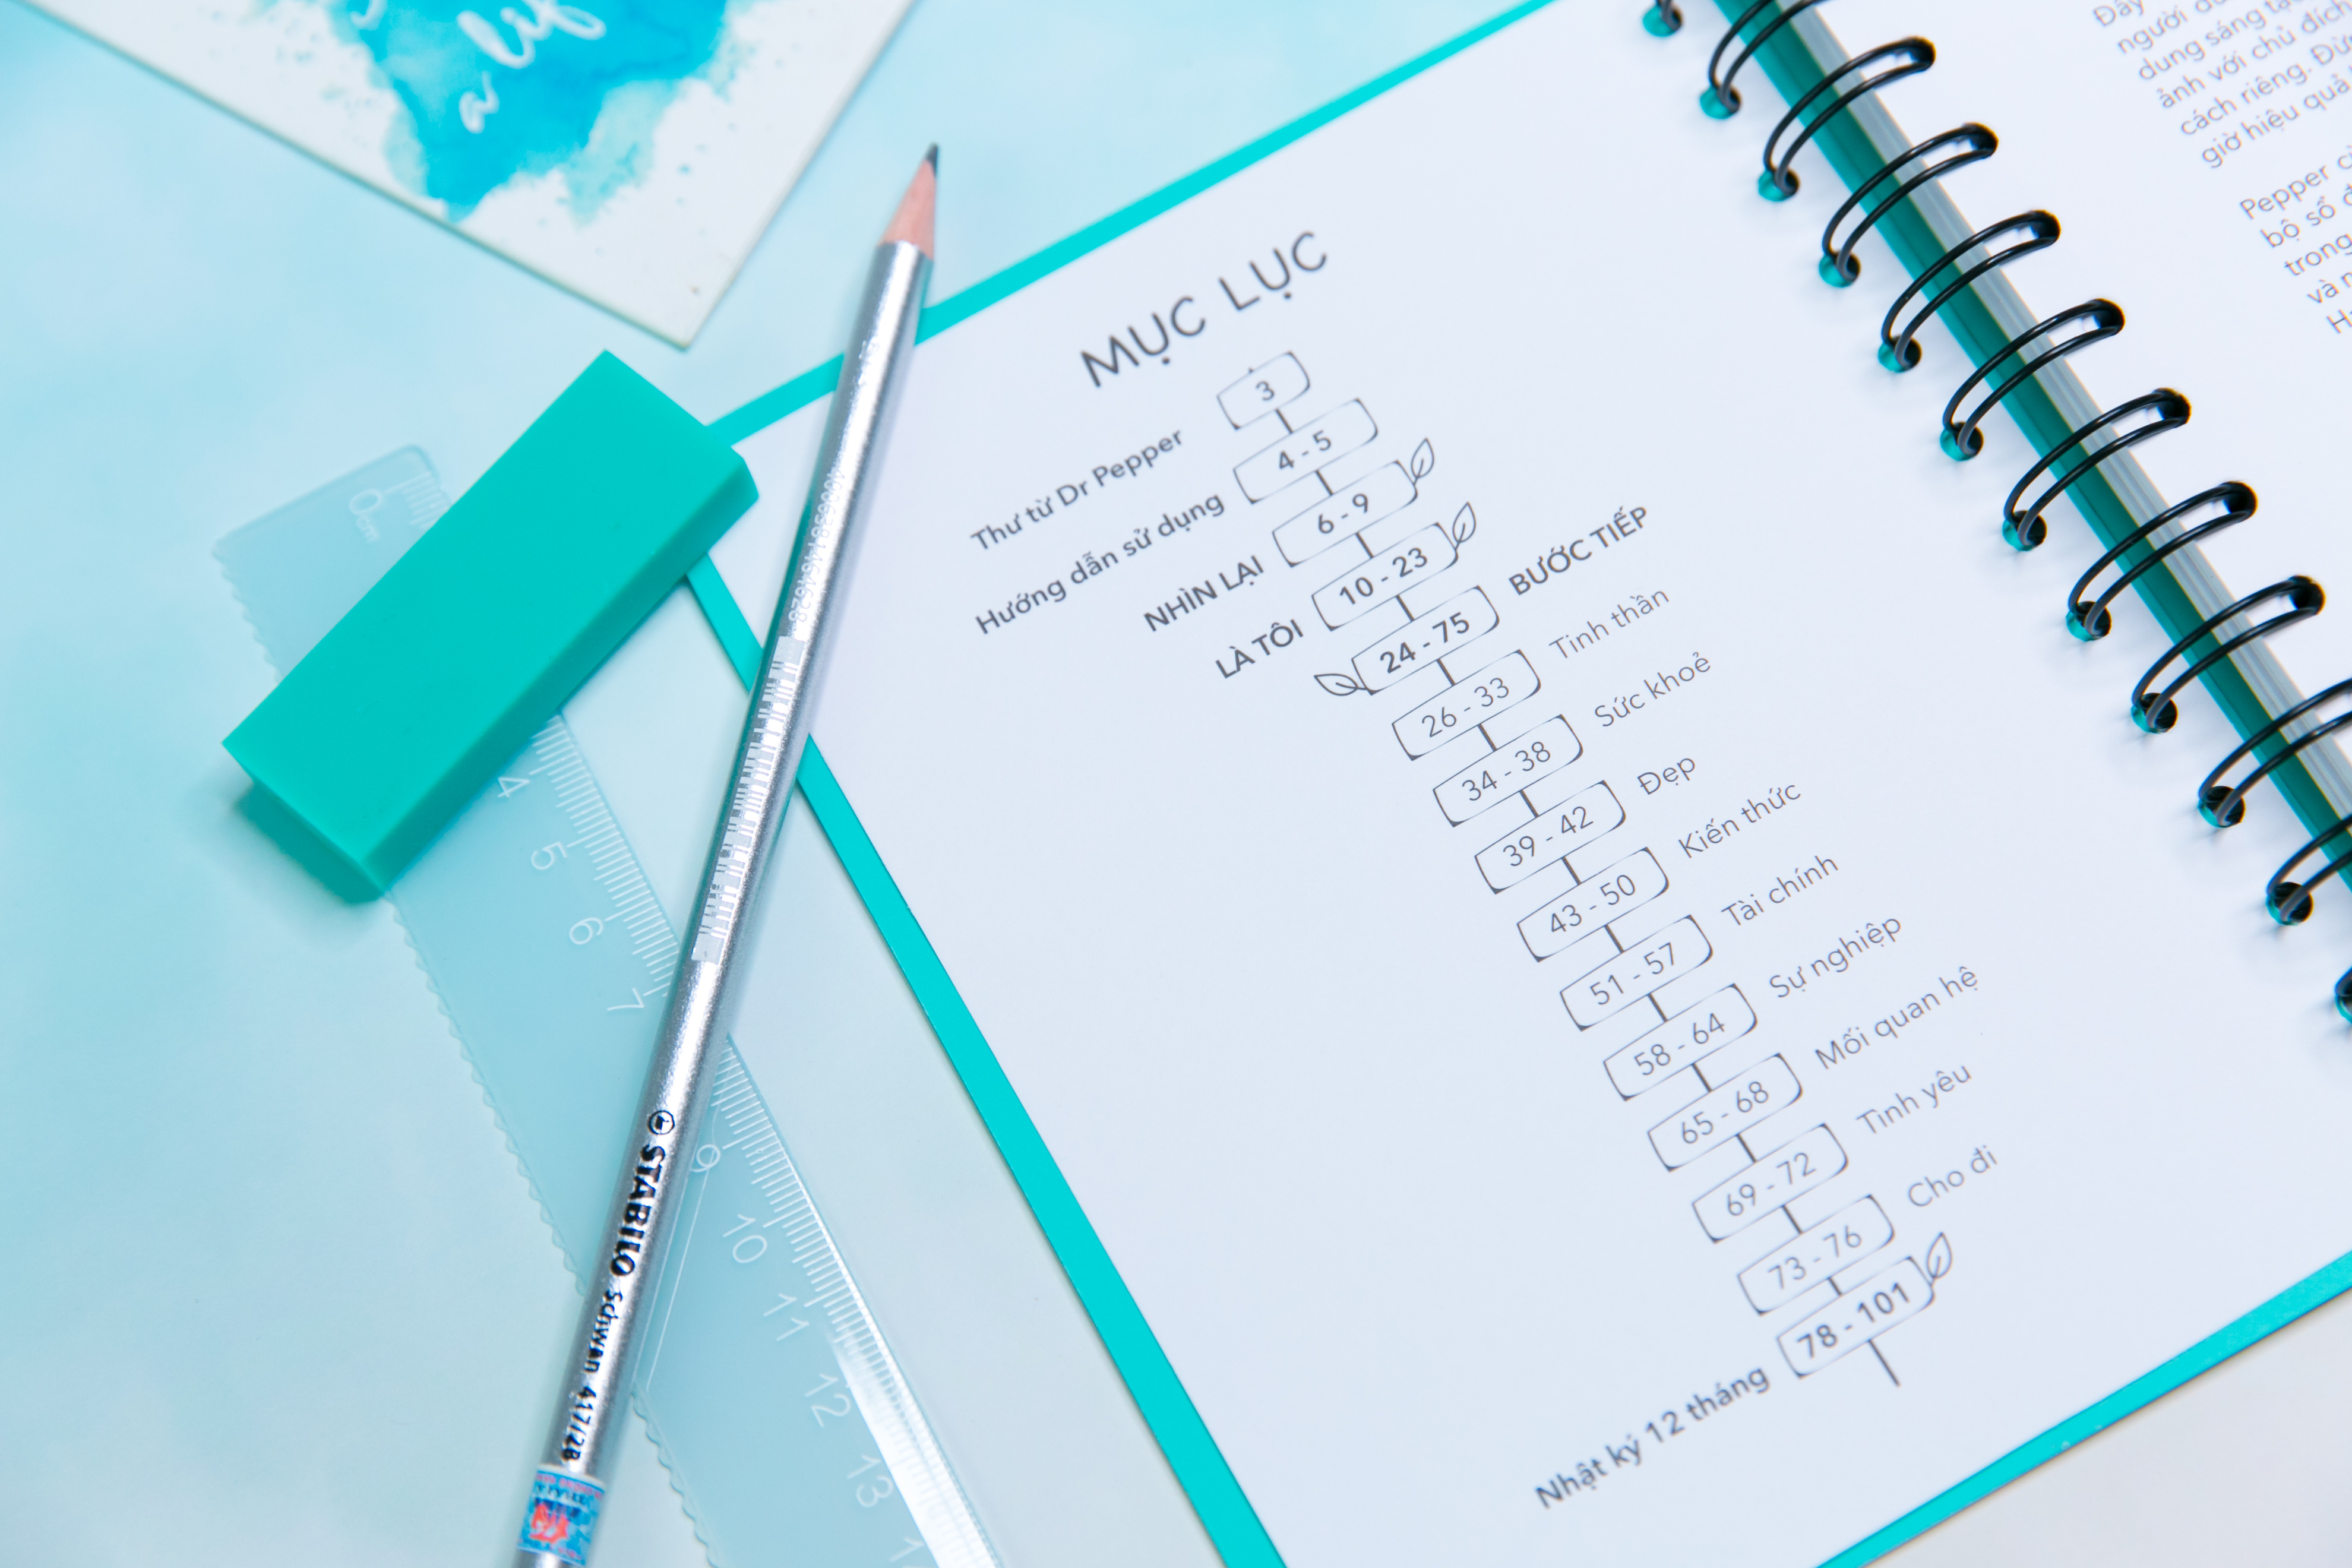 a lif
MỤC LỤC
Thư từ Dr Pepper 3
Hướng dẫn sử dụng 4 - 5
NHÌN LẠI 6 - 9
LÀ TÔI 10 - 23
24 - 75 BƯỚC TIẾP
26 - 33 Tinh thần
34 - 38 Sức khoẻ
39 - 42 Đẹp
43 - 50 Kiến thức
51 - 57 Tài chính
58 - 64 Sự nghiệp
65 - 68 Mối quan hệ
69 - 72 Tình yêu
73 - 76 Cho đi
Nhật ký 12 tháng 78 - 101
Đây
người
dung sáng
ảnh với chủ đích
cách riêng. Đừ
giờ hiệu quả
Pepper
bộ sổ
trong
và
STABILO Schwan 417/2B
0cm
4
5
6
7
9
10
11
12
13